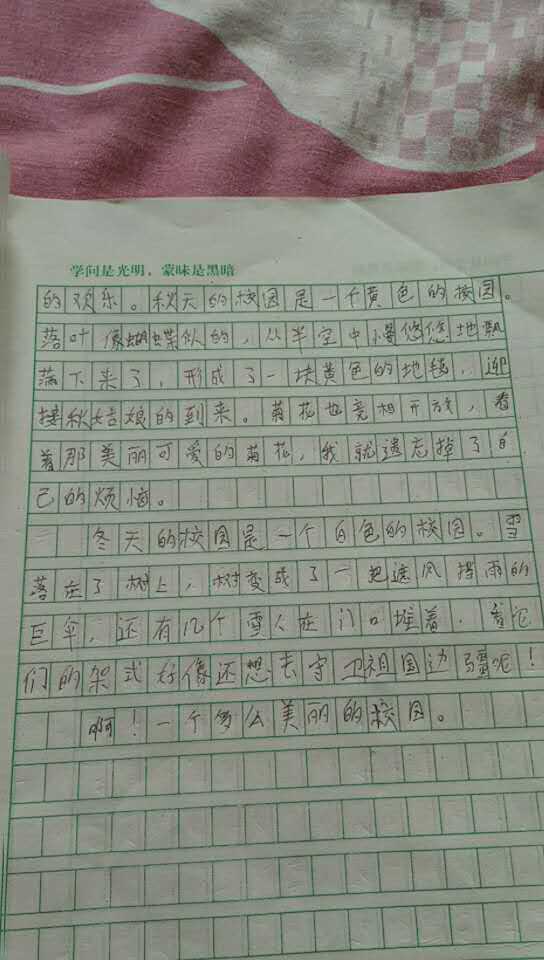 学问是光明，蒙昧是黑暗
的欢乐。秋天的校园是一个黄色的校园。
落叶像蝴蝶似的，从半空中慢悠悠地飘
荡下来了，形成了一块黄色的地毯，迎
接秋姑娘的到来。菊花也竞相开放，看
着那美丽可爱的菊花，我就遗忘掉了自
己的烦恼。
冬天的校园是一个白色的校园。雪
落在了树上，树变成了一把遮风挡雨的
巨伞，还有几个雪人在门口堆着，看它
们的架式好像还想去守卫祖国边疆呢！
啊！一个多么美丽的校园。